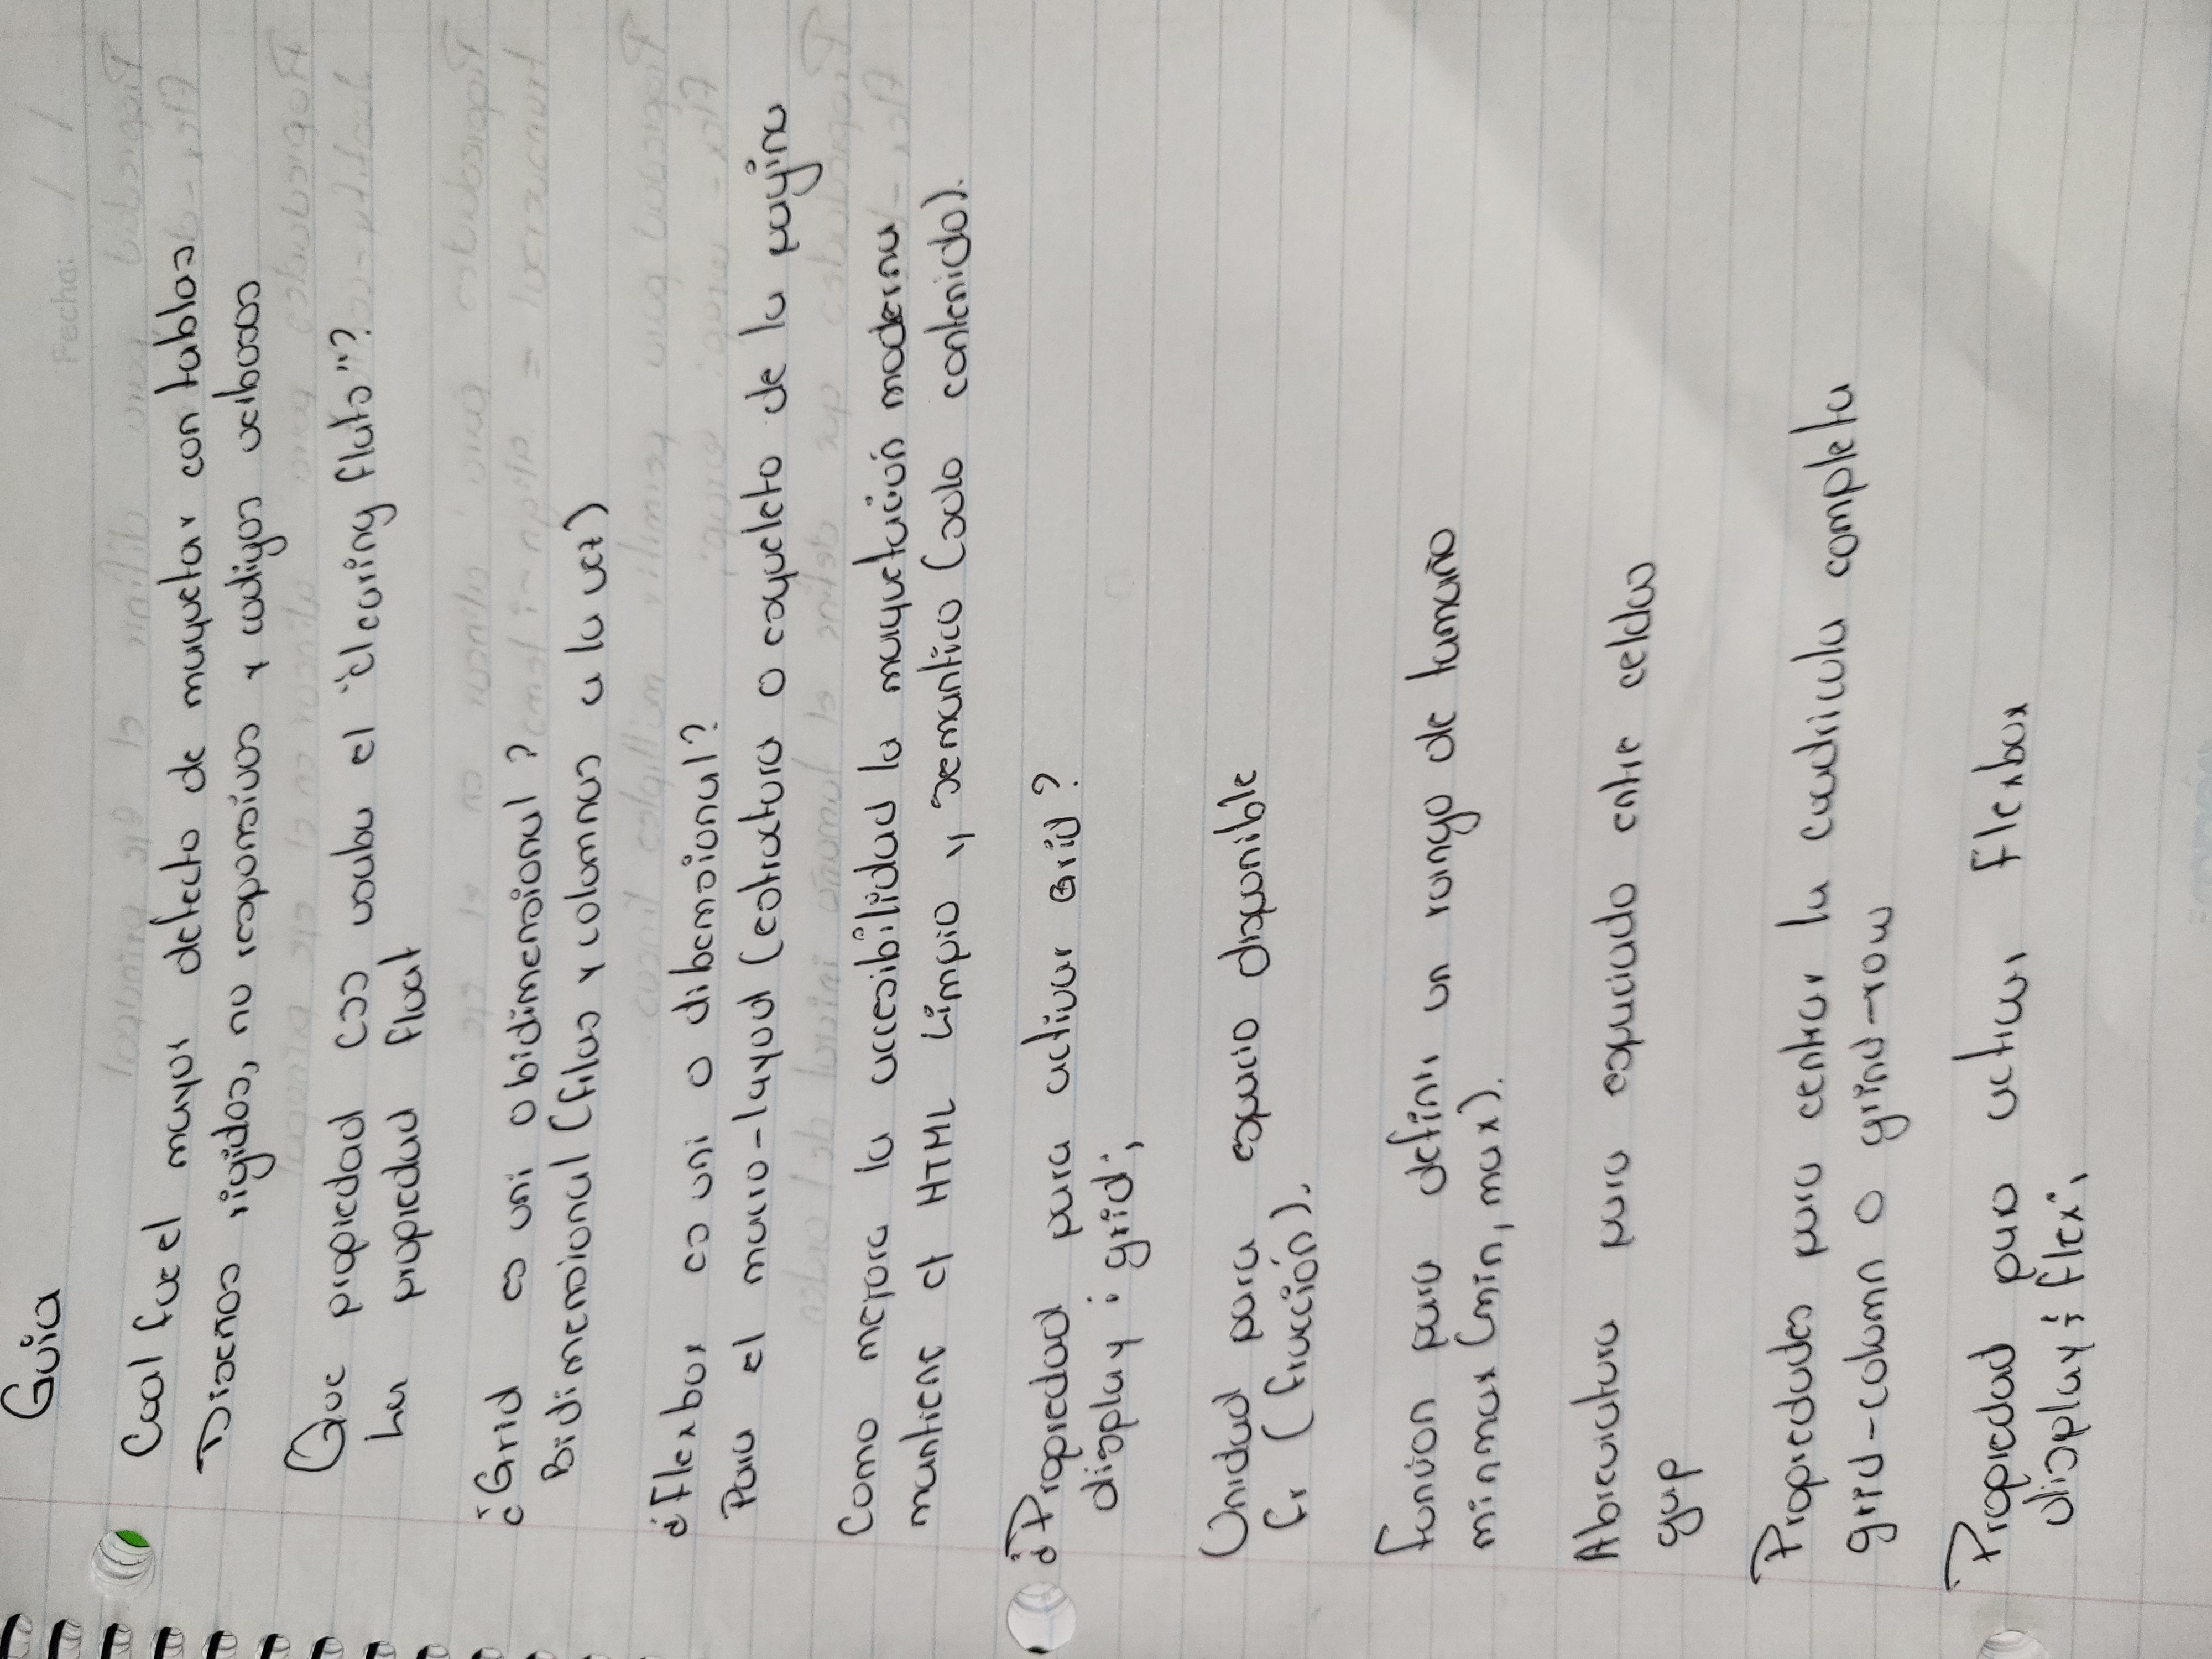 Guia
Fecha: / /
Cual fue el mayor defecto de maquetar con tablas
Diseños rigidos, no responsivos y codigos verbosos
Que propiedad css usaba el "clearing flats"?
La propiedad float
¿Grid es uni o bidimensional?
Bidimensional (filas y columnas a la vez)
¿Flexbox es uni o dibemsional?
Para el macro-layout (estructura o esqueleto de la pagina
Como mejora la accesibilidad la maquetación moderna
mantiene el HTML Limpio y semantico (solo contenido).
¿Propiedad para activar Grid?
display : grid;
Unidad para espacio disponible
fr (fracción).
Funcion para definir un rango de tamaño
minmax (min, max).
Abreviatura para espaciado entre celdas
gap
Propiedades para centrar la cuadricula completa
grid-column o grind-row
Propiedad para activar Flexbox
display: flex;